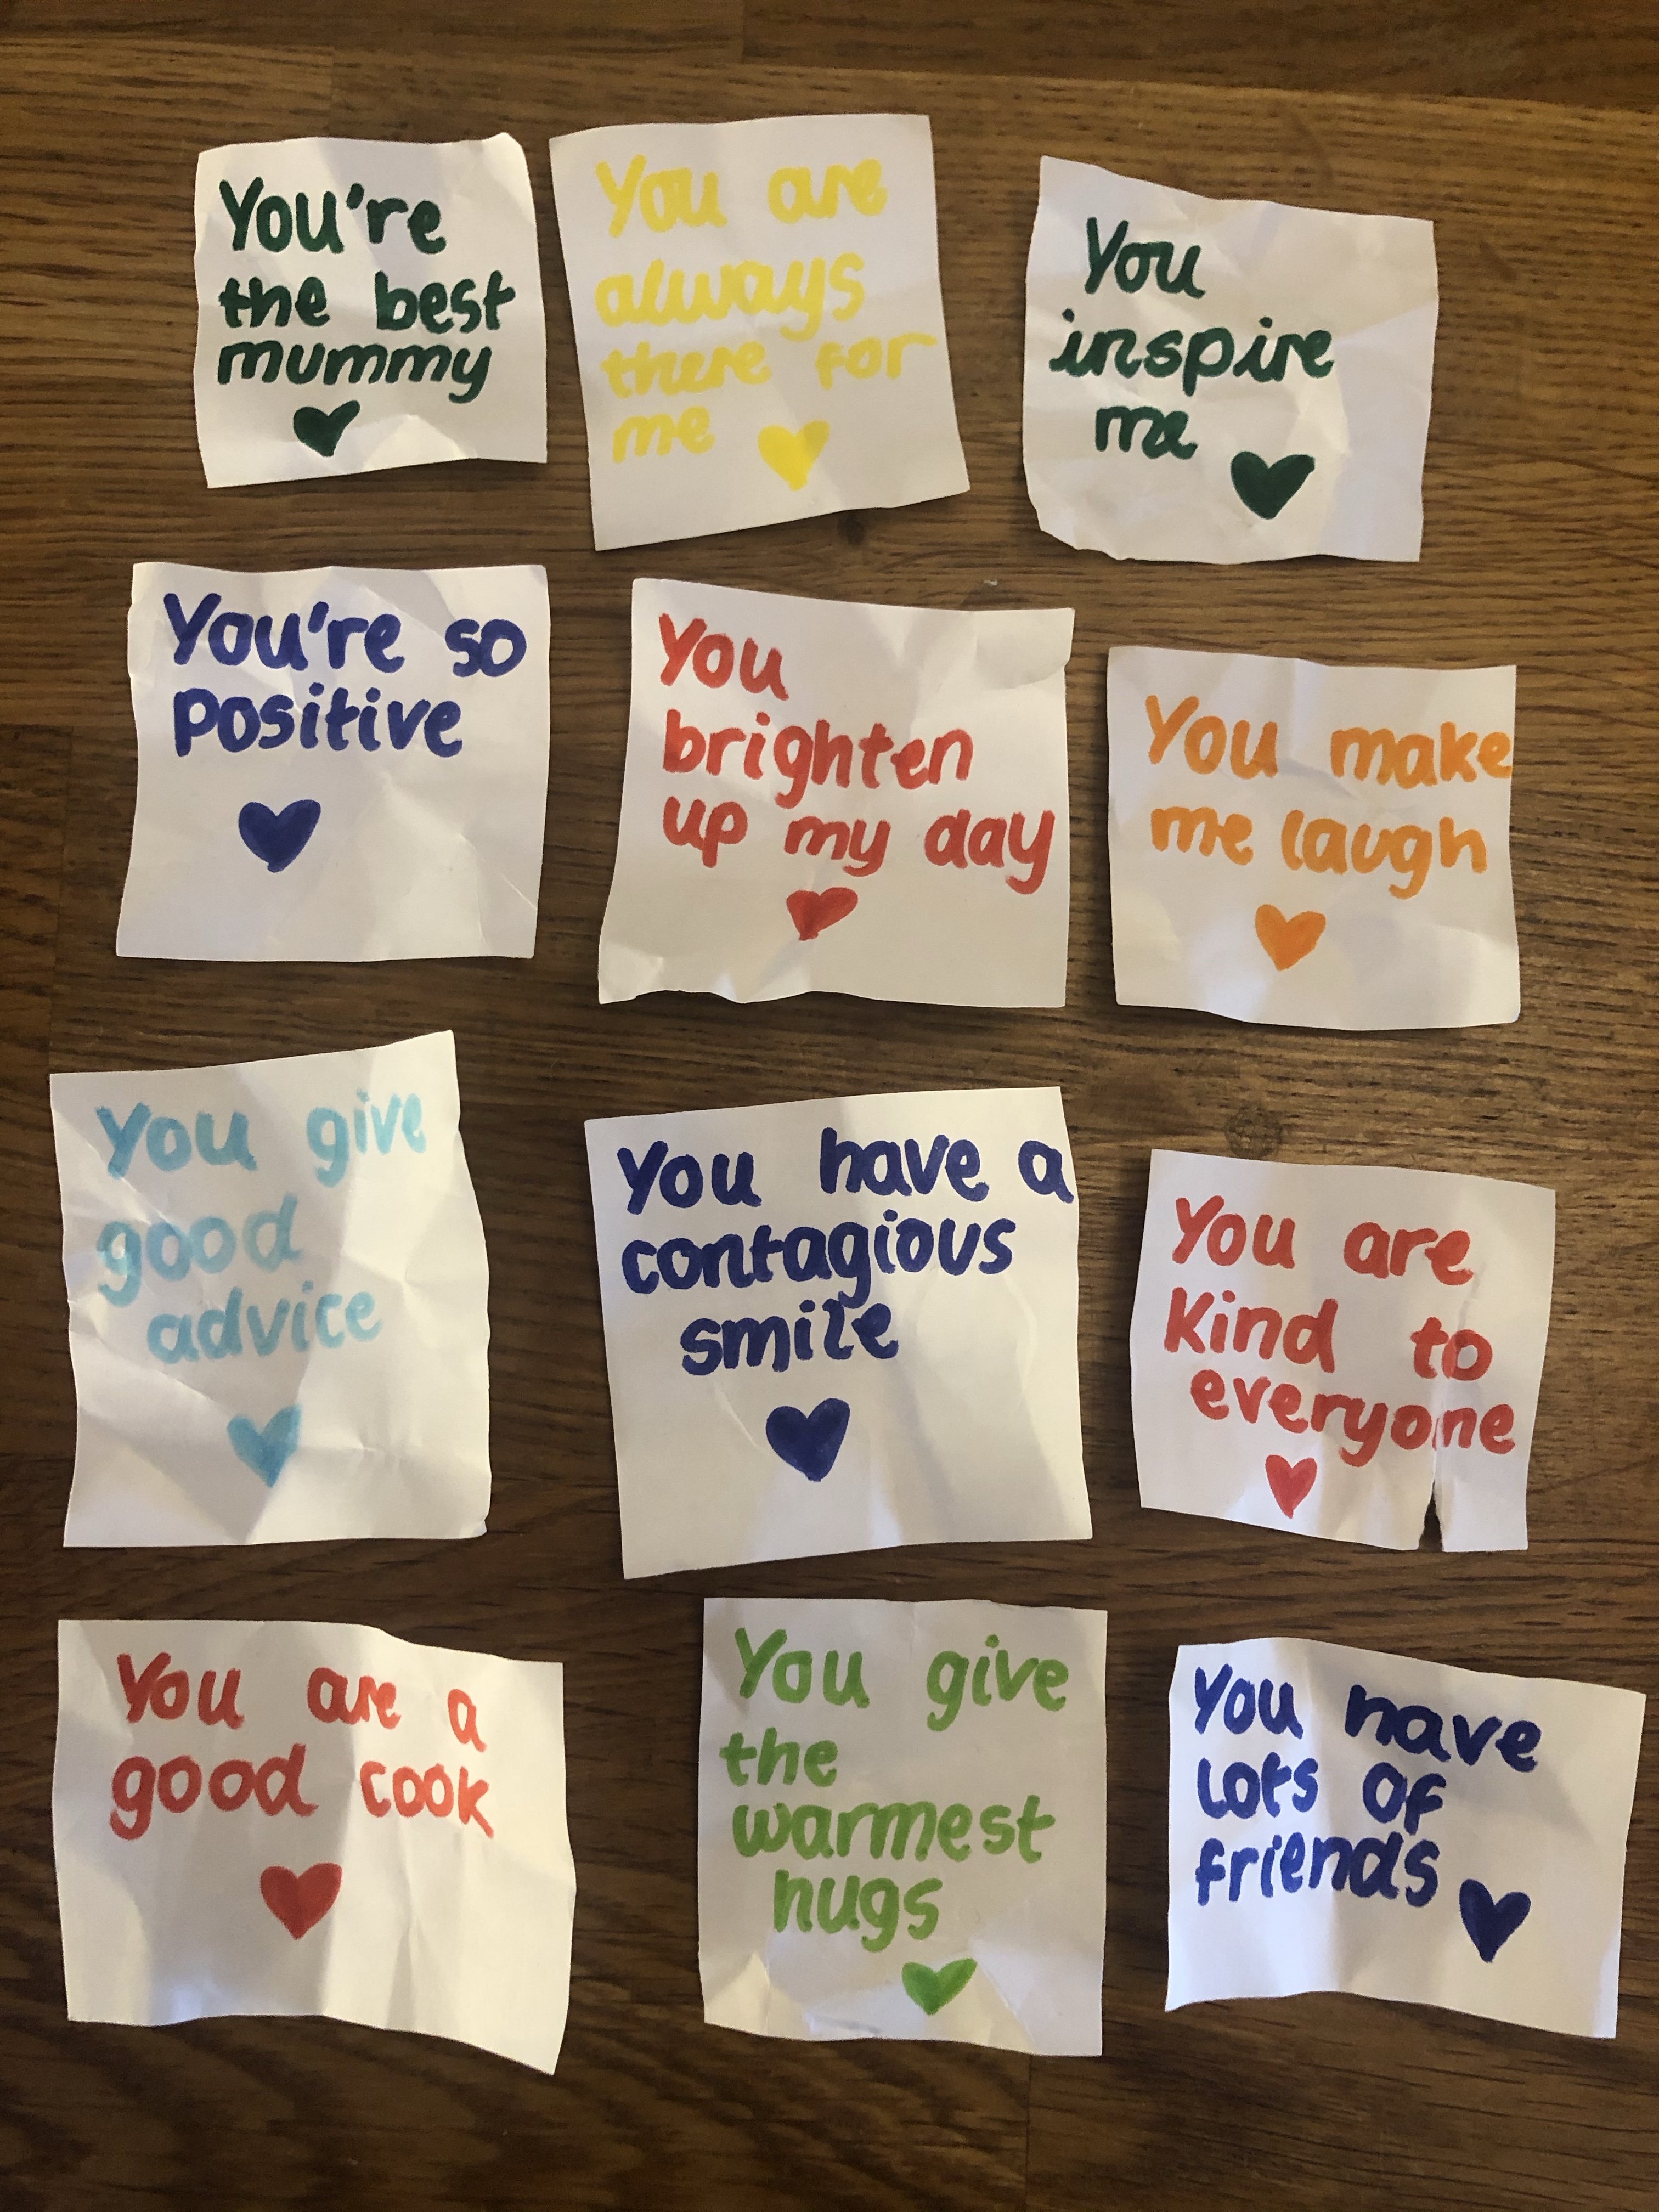 You're
the best
mummy
You are
always
there for
me
You
inspire
me
You're so
positive
You
brighten
up my day
You make
me laugh
You give
good
advice
You have a
contagious
smile
You are
kind to
everyone
You are a
good cook
You give
the
warmest
hugs
You have
lots of
friends